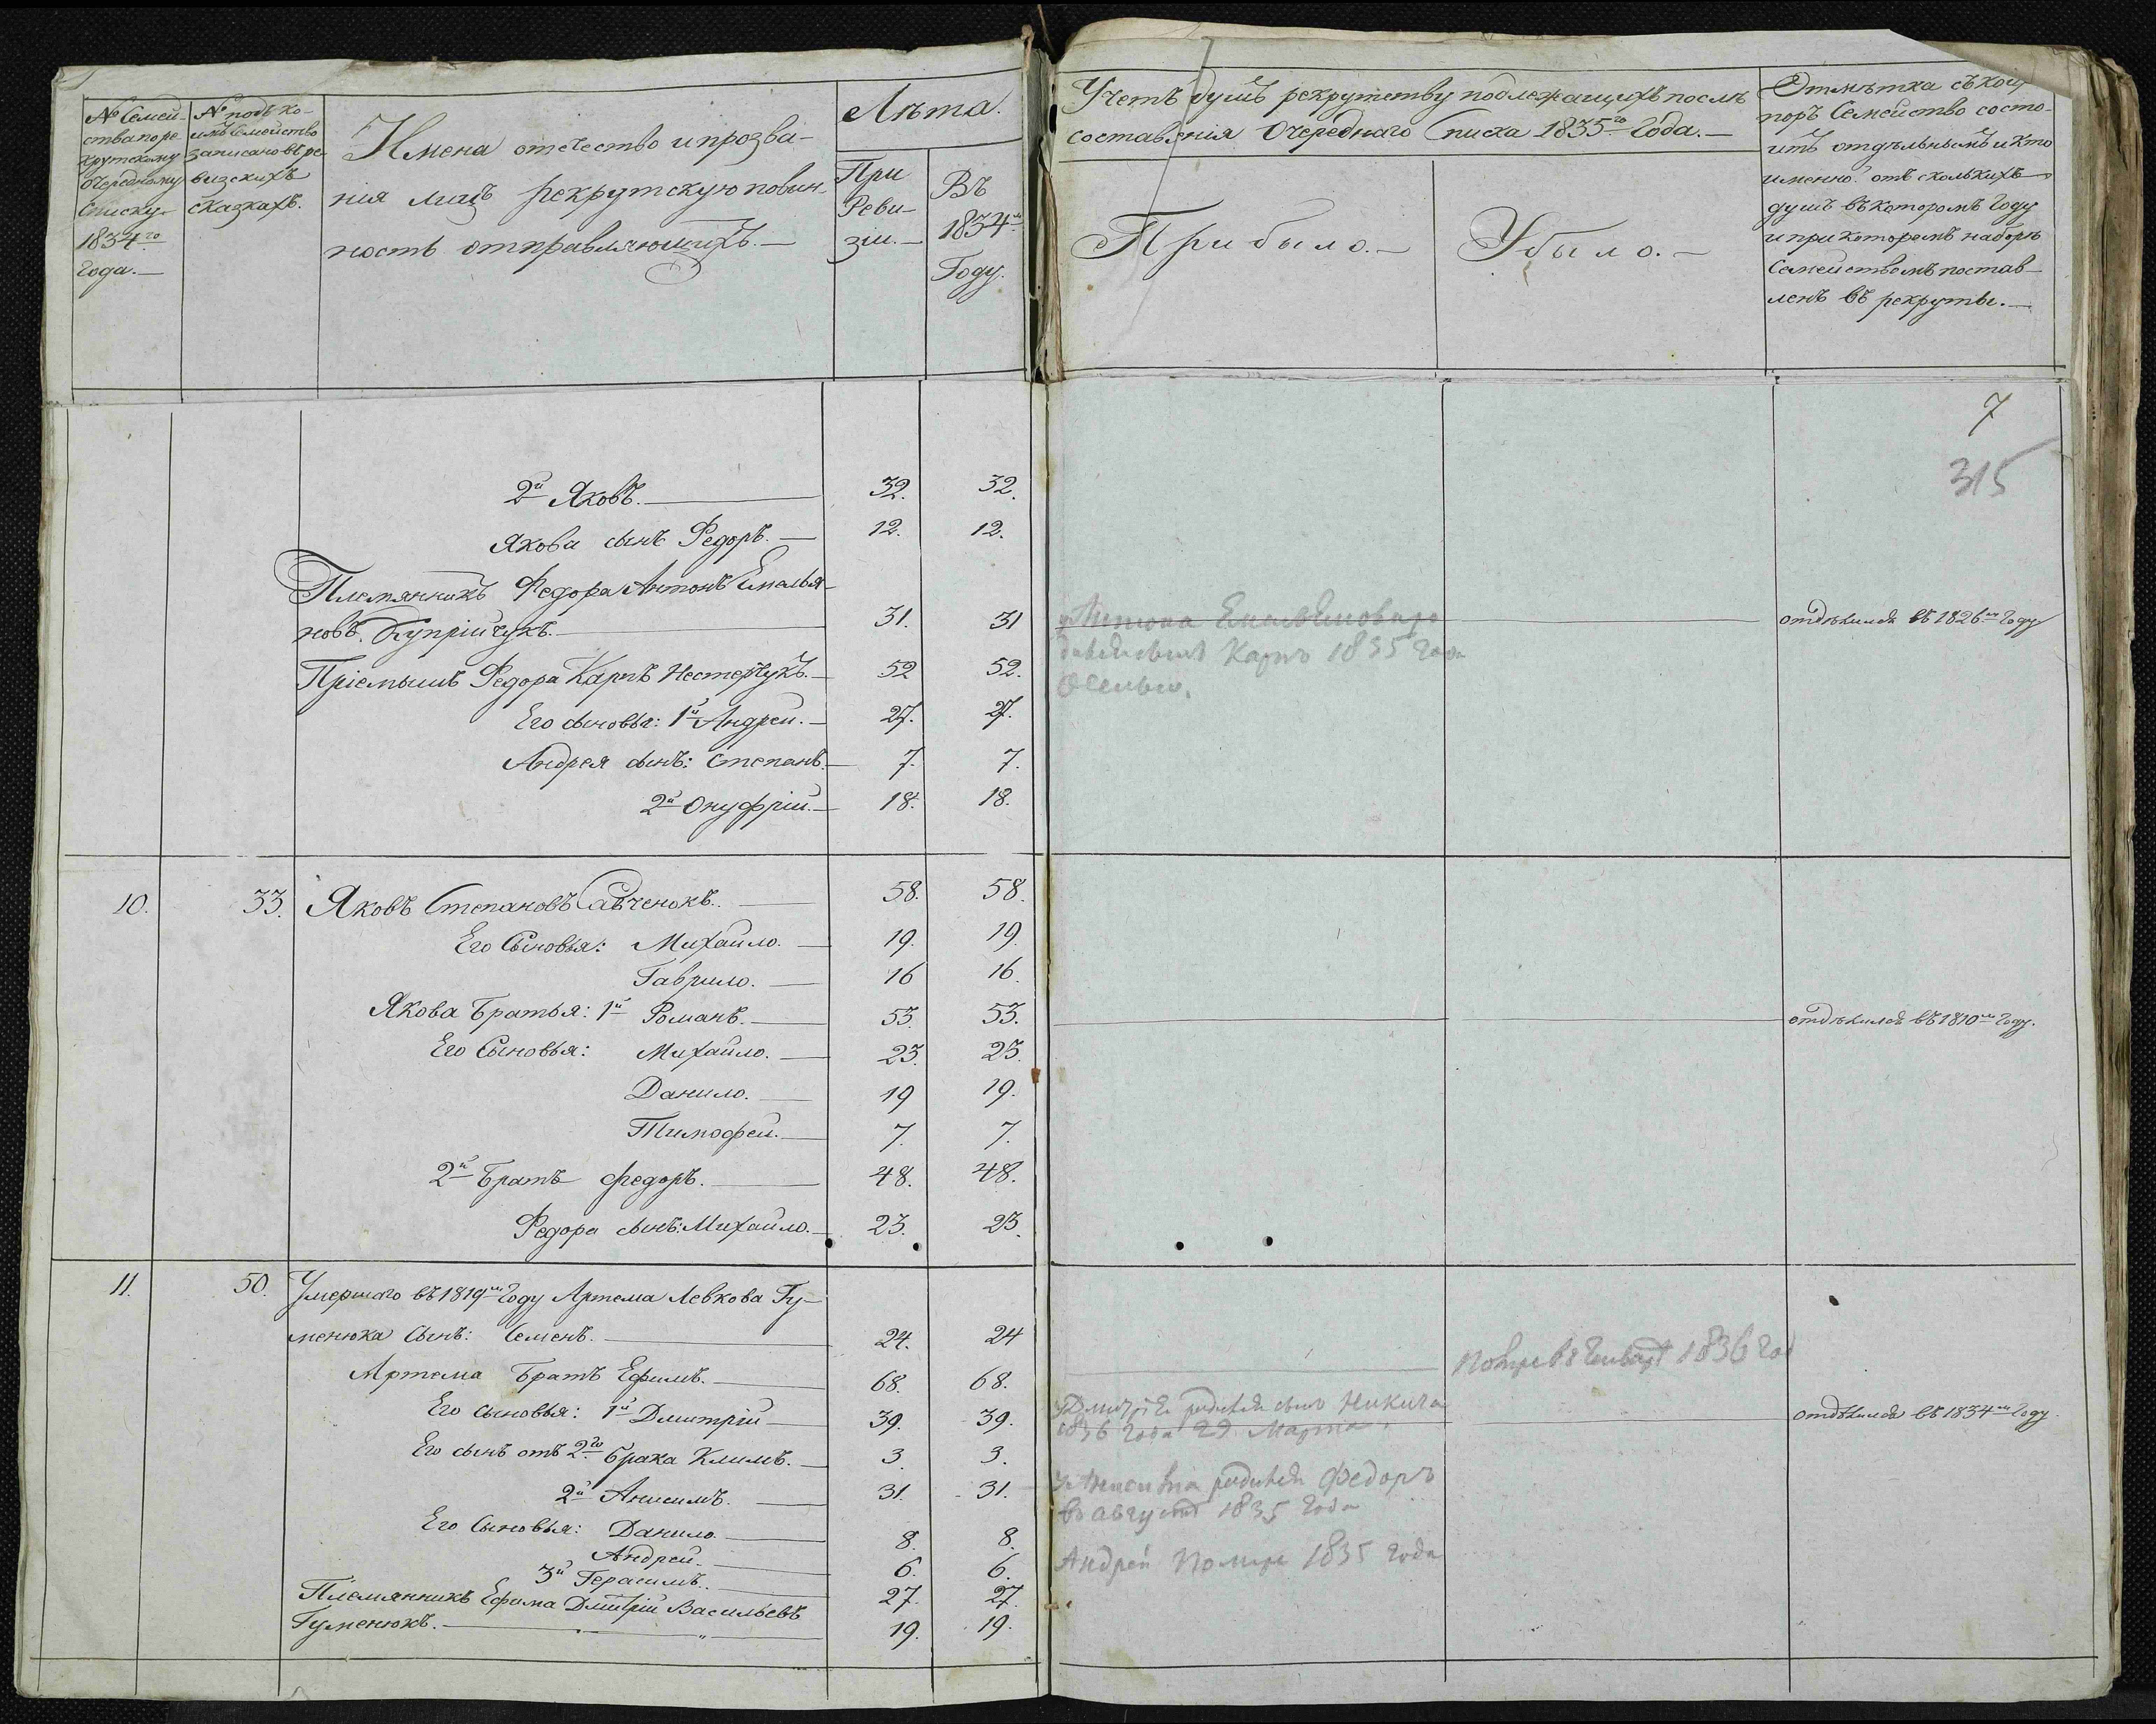 № Семей-
ства по ре
крутскому
очередному
списку
1834го
Года.—
№ подъ ко-
имъ Семейство
записано въ ре-
визскихъ
сказкахъ.
Имена отечество и прозва-
нія лицъ рекрутскую повин-
ность отправляющихъ.—
Лѣта.
При
Реви-
зіи.—
Въ
1834м
Году.
Учетъ душъ рекрутству подлежащихъ послѣ
составленія Очереднаго Списка 1835го Года.—
Прибыло.—
Убыло.—
Отмѣтка съ кои
поръ Семейство состо-
итъ отдѣльнымъ и кто
именно: отъ сколькихъ
душъ въ которомъ Году
и при которомъ наборѣ
Семействомъ постав-
ленъ въ рекруты.—
7
315
2й Яковъ.— 32. 32.
Якова сынъ Федоръ.— 12. 12.
Племянникъ Федора Антонъ Емелья-
новъ Купрійчукъ.— 31. 31 отдѣлился въ 1826м Году
у Антона
сынъ Карпъ 1835 Года
Пріемышъ Федора Карпъ Нестерчукъ.— 52 52.
Его сыновья: 1й Андрей.— 27. 27.
Андрея сынъ: Степанъ.— 7. 7.
2й Онуфрій.— 18. 18.
10. 33. Яковъ Степановъ Савченокъ.— 58. 58.
Его Сыновья: Михайло.— 19. 19.
Гаврило.— 16 16.
Якова Братья: 1й Романъ.— 53. 53. отдѣлился въ 1810м Году.
Его Сыновья: Михайло.— 23. 23.
Данило.— 19 19.
Тимофей.— 7. 7.
2й Братъ Федоръ.— 48. 48.
Федора сынъ: Михайло.— 23. 23.
11. 50. Умершаго въ 1819м Году Артема Левкова Гу-
менюка Сынъ: Семенъ.— 24. 24
Артема Братъ Ефимъ.— 68. 68. 1836 Год
Его сыновья: 1й Дмитрій— 39. 39. отдѣлился въ 1834м Году
у Дмитрія родился сынъ Никита
1836 Года 29 Марта
Его сынъ отъ 2го Брака Климъ.— 3. 3.
2й Анисимъ.— 31. 31.
у Анисима родился Федоръ
въ августѣ 1835 Года
Его Сыновья: Данило.— 8. 8.
Андрей.— 6. 6. Андрей помре 1835 Года
3й Герасимъ.— 27. 27.
Племянникъ Ефима Дмитрій Васильевъ
Гуменюкъ.— 19. 19.